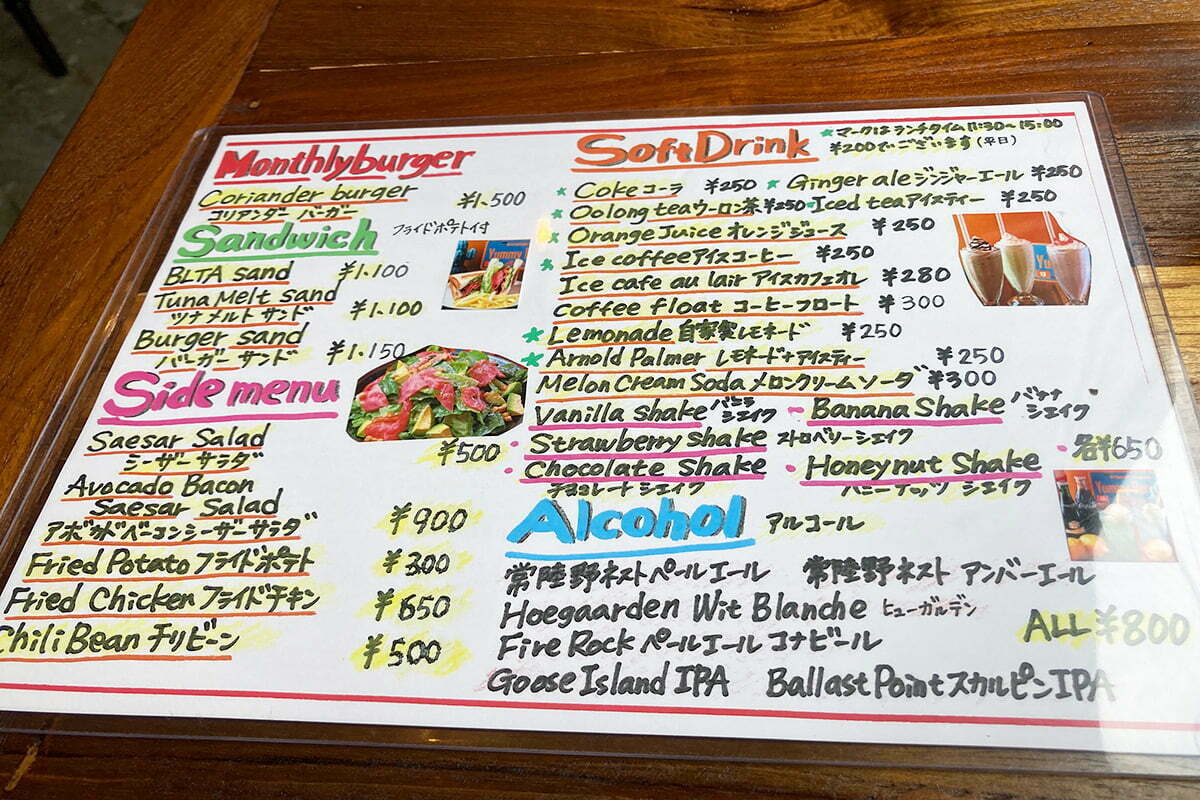 Monthlyburger
Coriander burger ¥1,500
コリアンダー バーガー
Sandwich フライドポテト付
BLTA sand ¥1,100
Tuna Melt sand ¥1,100
ツナメルト サンド
Burger sand ¥1,150
バーガー サンド
Side menu
Saesar Salad ¥500
シーザーサラダ
Avocado Bacon
Saesar Salad ¥900
アボガドベーコンシーザーサラダ
Fried Potato フライドポテト ¥300
Fried Chicken フライドチキン ¥650
Chili Bean チリビーン ¥500
Soft Drink
★マークは ランチタイム 11:30~15:00
¥200でございます(平日)
★ Coke コーラ ¥250 ★ Ginger ale ジンジャーエール ¥250
★ Oolong tea ウーロン茶 ¥250 Iced tea アイスティー ¥250
★ Orange Juice オレンジジュース ¥250
★ Ice coffee アイスコーヒー ¥250
Ice cafe au lair アイスカフェオレ ¥280
coffee float コーヒーフロート ¥300
★ Lemonade 自家製レモネード ¥250
★ Arnold Palmer レモネード+アイスティー ¥250
Melon Cream Soda メロンクリームソーダ ¥300
Vanilla shake バニラシェイク Banana Shake バナナシェイク
Strawberry shake ストロベリーシェイク 各¥650
Chocolate Shake Honeynut Shake
チョコレート シェイク ハニーナッツ シェイク
Alcohol アルコール
常陸野ネストペールエール 常陸野ネスト アンバーエール
Hoegaarden Wit Blanche ヒューガルデン
Fire Rock ペールエール コナビール ALL ¥800
Goose Island IPA Ballast Point スカルピン IPA
Yummy